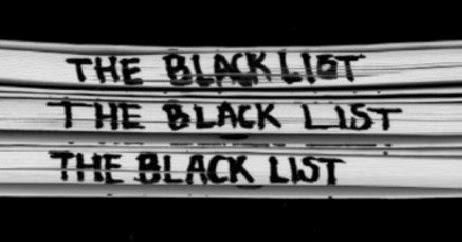 THE BLACKLIST
THE BLACK LIST
THE BLACK LIST